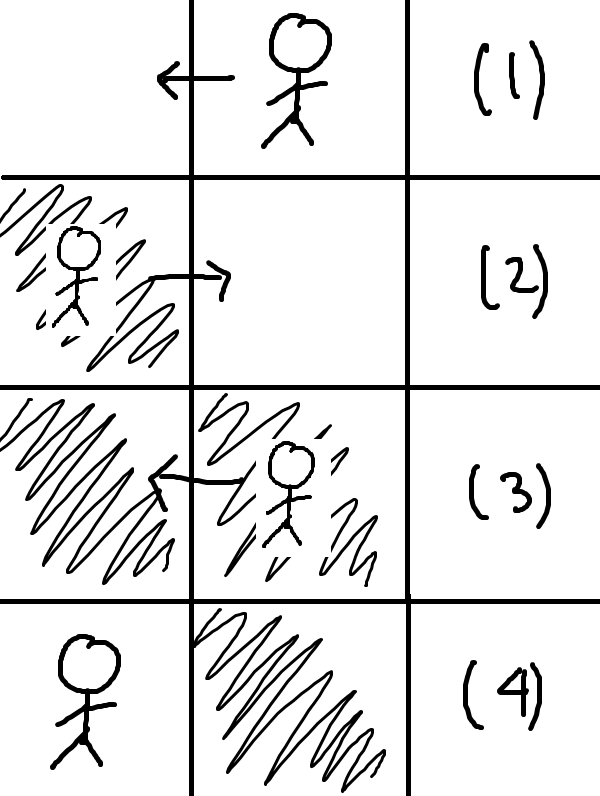 (1)
(2)
(3)
(4)